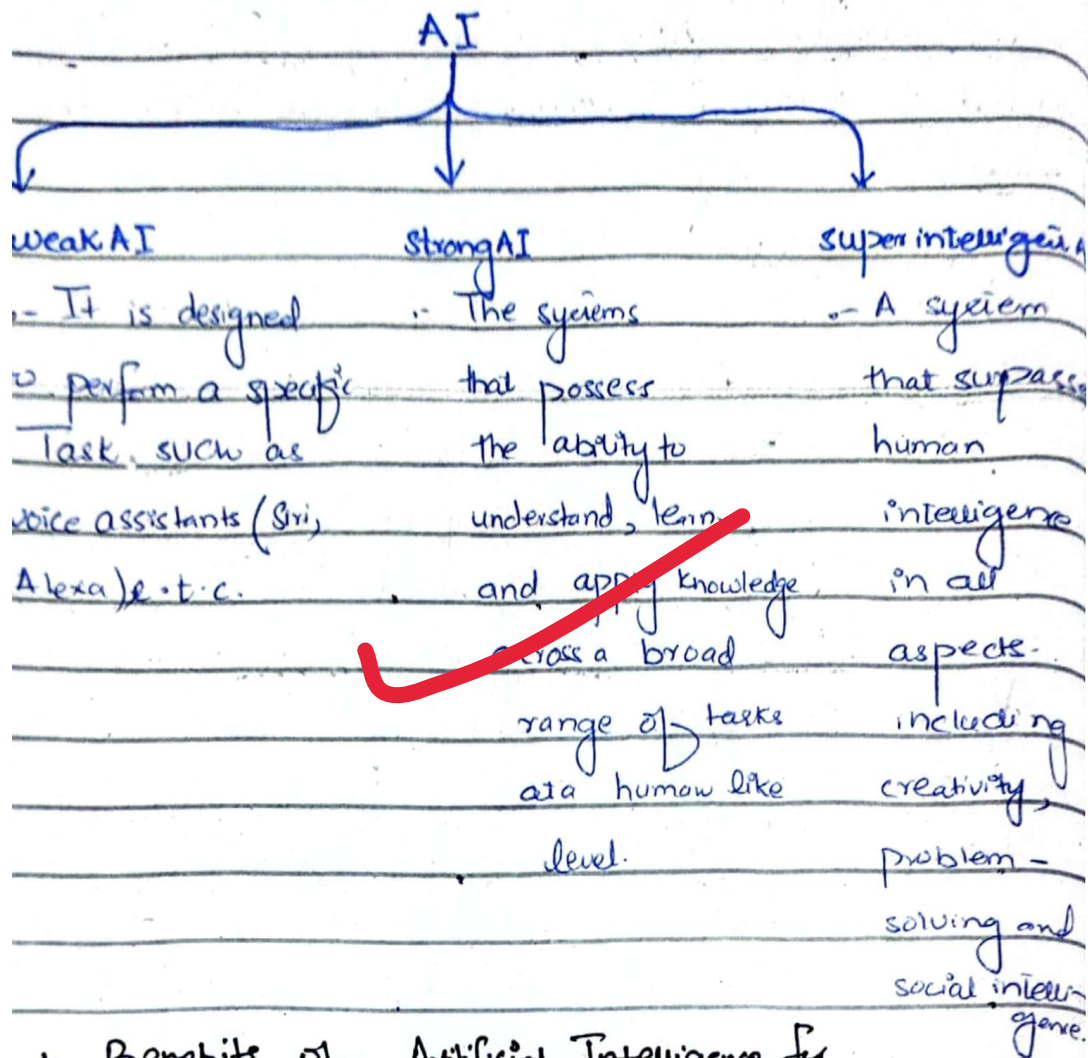 AI
weak AI
:- It is designed
to perform a specific
Task such as
voice assistants (Siri,
Alexa) e.t.c.
Strong AI
:- The systems
that possess
the ability to
understand, learn
and apply knowledge
across a broad
range of tasks
at a human like
level.
super intelligence
:- A system
that surpass
human
intelligence
in all
aspects.
including
creativity,
problem -
solving and
social intelli-
gence.
Benefits of Artificial Intelligence for